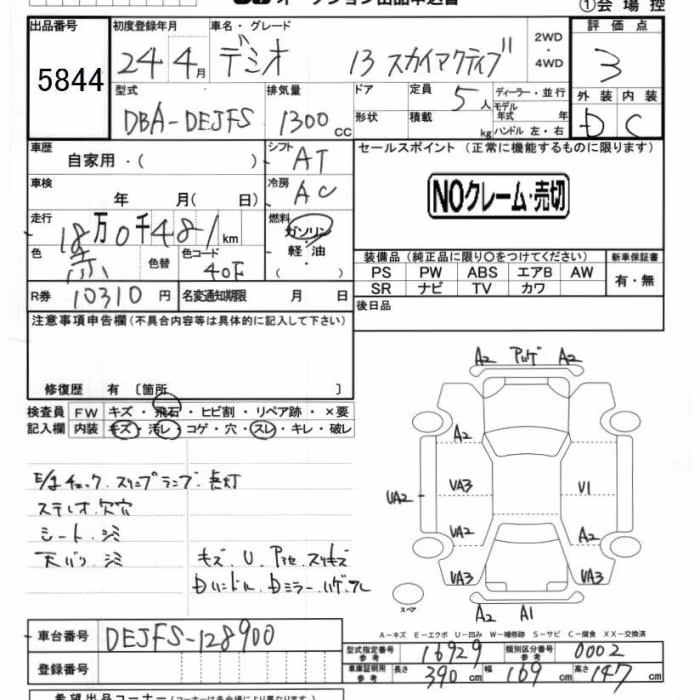 オークション出品申込書 ①会場控
出品番号 初度登録年月 車名・グレード 2WD 評価点
5844 24年4月 デミオ 13 スカイアクティブ ・4WD 3
型式 排気量 ドア 定員 ディーラー・並行 外装 内装
DBA-DEJFS 1300cc 5人 モデル年式 年 D C
形状 積載 kg ハンドル 左・右
車歴 自家用・( ) シフト AT セールスポイント (正常に機能するものに限ります)
車検 年 月( 日) 冷房 AC NOクレーム・売切
走行 18万0千481km 燃料 ガソリン・軽油 ( )
色 赤 色替 色コード 40F 装備品(純正品に限り○をつけてください) 新車保証書
PS PW ABS エアB AW 有・無
SR ナビ TV カワ
R券 10310円 名変通知期限 月 日 後日品
注意事項申告欄(不具合内容等は具体的に記入して下さい)
修復歴 有 〔箇所 〕
検査員 FW キズ・飛石・ヒビ割・リペア跡・×要
記入欄 内装 キズ・汚レ・コゲ・穴・スレ・キレ・破レ
A2 A2
A2
UA2 UA3 U1
UA2 A2
UA3 UA3
スペア A2 A1
E/gチェック.スリップランプ点灯
ステレオ欠穴
シート.シミ
天バリ.シミ
キズ.U.アセ.スリキズ
A-キズ E-エクボ U-凹み W-補修跡 S-サビ C-腐食 XX-交換済
車台番号 DEJFS-128900
型式指定番号 参考 16929 類別区分番号 参考 0002
登録番号 車庫証明用 参考 長さ 390cm 幅 169cm 高さ 147cm
希望出品コーナー